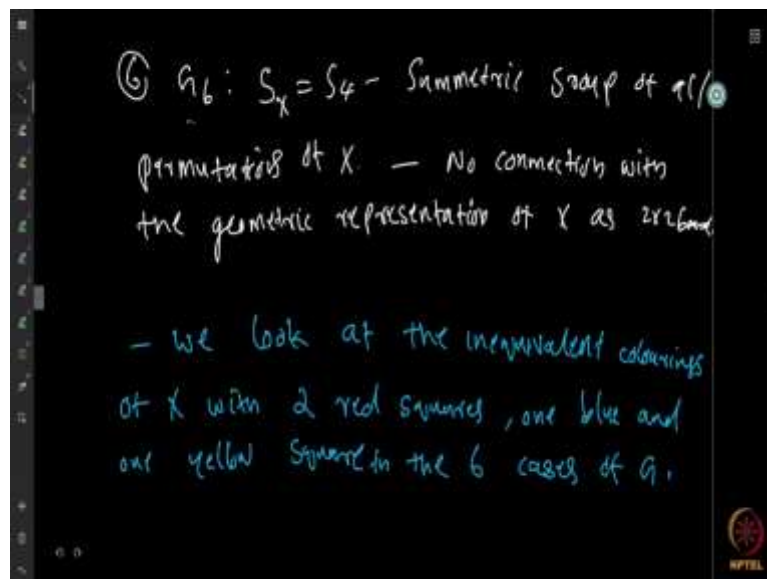 ⑥ G₆ : Sₓ = S₄ - Symmetric Group of all
permutations of X. — No connection with
the geometric representation of X as 2x2 board
- We look at the inequivalent colourings
of X with 2 red squares, one blue and
one yellow square in the 6 cases of G.
NPTEL